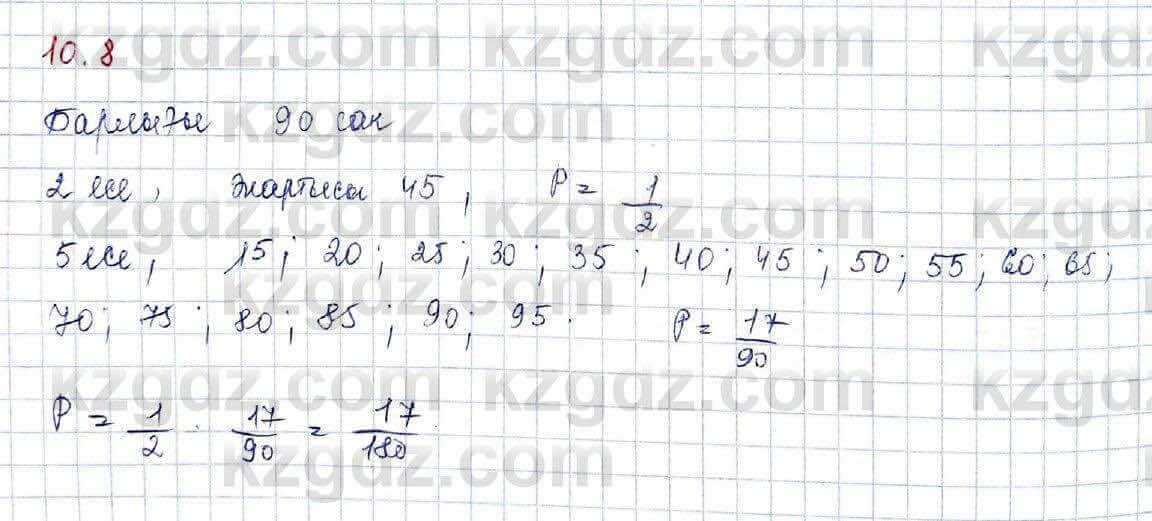 10.8
Барлығы 90 сан
2 есе, жартысы 45, P = 1/2
5 есе, 15; 20; 25; 30; 35; 40; 45; 50; 55; 60; 65;
70; 75; 80; 85; 90; 95. P = 17/90
P = 1/2 · 17/90 = 17/180
kzgdz.com kzgdz.com kzgdz.com
kzgdz.com
kzgdz.com kzgdz.com kzgdz.com
kzgdz.com
kzgdz.com kzgdz.com kzgdz.com
kzgdz.com